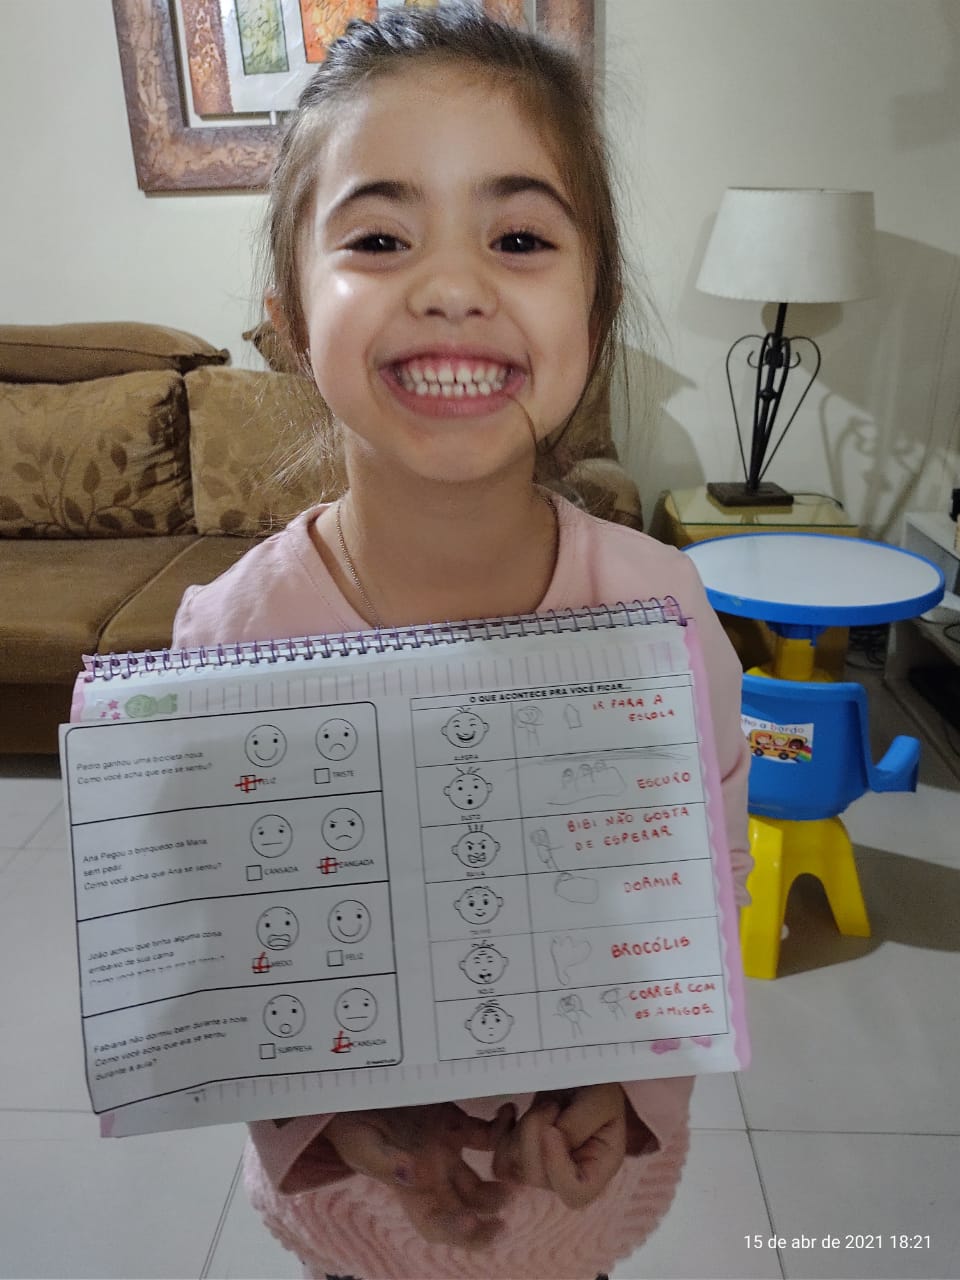 Pedro ganhou uma bicicleta nova.
Como você acha que ele se sentiu?
FELIZ
TRISTE
Ana Pegou o brinquedo da Maria
sem pedir.
Como você acha que Ana se sentiu?
CANSADA
ZANGADA
João achou que tinha alguma coisa
embaixo de sua cama.
Como você acha que ele se sentiu?
MEDO
FELIZ
Fabiana não dormiu bem durante a noite.
Como você acha que ela se sentiu
durante a aula?
SURPRESA
CANSADA
O QUE ACONTECE PRA VOCÊ FICAR...
ALEGRIA
IR PARA A
ESCOLA
SUSTO
ESCURO
RAIVA
BIBI NÃO GOSTA
DE ESPERAR
DORMIR
NOJO
BROCÓLIS
CANSADO
CORRER COM
OS AMIGOS
a bordo
15 de abr de 2021 18:21